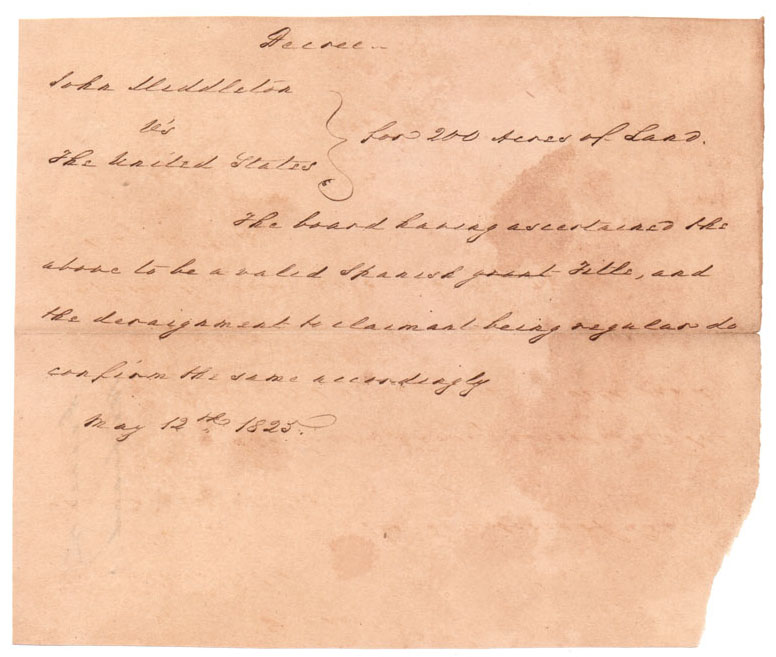 Decree
John Middleton
Vs
The United States
for 200 Acres of Land.
The board having ascertained the
above to be a valid Spanish grant Title, and
the deraignment to claimant being regular do
confirm the same accordingly
May 12th 1825.